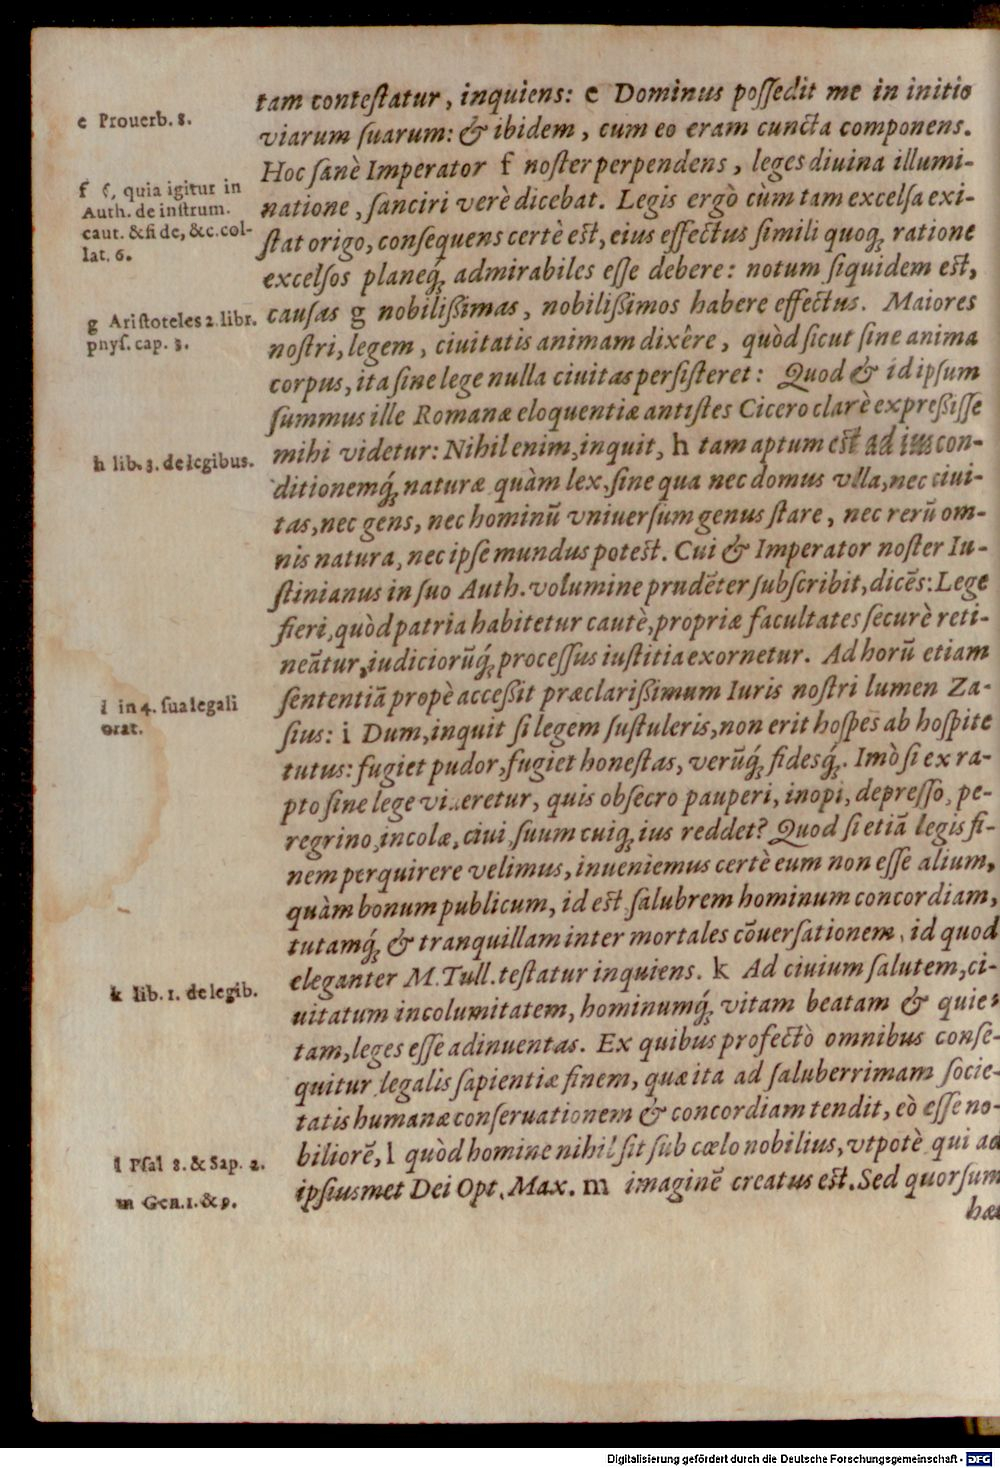 tam conteſtatur, inquiens: e Dominus poſſedit me in initio
viarum ſuarum: & ibidem, cum eo eram cuncta componens.
Hoc ſanè Imperator f noſter perpendens, leges diuina illumi-
natione, ſanciri verè dicebat. Legis ergò cùm tam excelſa exi-
ſtat origo, conſequens certè eſt, eius effectus ſimili quoq; ratione
excelſos planeq́; admirabiles eſſe debere: notum ſiquidem eſt,
cauſas g nobilißimas, nobilißimos habere effectus. Maiores
noſtri, legem, ciuitatis animam dixêre, quòd ſicut ſine anima
corpus, ita ſine lege nulla ciuitas perſiſteret: Quod & id ipſum
ſummus ille Romanæ eloquentiæ antiſtes Cicero clarè expreßiſſe
mihi videtur: Nihil enim, inquit, h tam aptum eſt ad ius con-
ditionemq́; naturæ quàm lex, ſine qua nec domus vlla, nec ciui-
tas, nec gens, nec hominū vniuerſum genus ſtare, nec rerū om-
nis natura, nec ipſe mundus poteſt. Cui & Imperator noſter Iu-
ſtinianus in ſuo Auth. volumine prudēter ſubſcribit, dicēs: Lege
fieri, quòd patria habitetur cautè, propriæ facultates ſecurè reti-
neātur, iudiciorūq́; proceſſus iuſtitia exornetur. Ad horū etiam
ſententiā propè acceßit præclarißimum Iuris noſtri lumen Za-
ſius: i Dum, inquit ſi legem ſuſtuleris, non erit hoſpes ab hoſpite
tutus: fugiet pudor, fugiet honeſtas, verūq́; fidesq́;. Imò ſi ex ra-
pto ſine lege viueretur, quis obſecro pauperi, inopi, depreſſo, pe-
regrino, incolæ, ciui, ſuum cuiq; ius reddet? Quod ſi etiā legis fi-
nem perquirere velimus, inueniemus certè eum non eſſe alium,
quàm bonum publicum, id eſt ſalubrem hominum concordiam,
tutamq́; & tranquillam inter mortales cōuerſationem, id quod
eleganter M. Tull. teſtatur inquiens. k Ad ciuium ſalutem, ci-
uitatum incolumitatem, hominumq́; vitam beatam & quie-
tam, leges eſſe adinuentas. Ex quibus profectò omnibus conſe-
quitur legalis ſapientiæ finem, quæ ita ad ſaluberrimam ſocie-
tatis humanæ conſeruationem & concordiam tendit, eò eſſe no-
biliorē, l quòd homine nihil ſit ſub cœlo nobilius, vtpotè qui ad
ipſiusmet Dei Opt. Max. m imaginē creatus eſt. Sed quorſum
hæc
e Prouerb. 8.
f §, quia igitur in
Auth. de inſtrum.
caut. & fide, &c. col-
lat. 6.
g Ariſtoteles 2. libr.
phyſ. cap. 3.
h lib. 3. de legibus.
i in 4. ſua legali
orat.
k lib. 1. de legib.
l Pſal 8. & Sap. 2.
m Gen. 1. & 9.
Digitalisierung gefördert durch die Deutsche Forschungsgemeinschaft - DFG